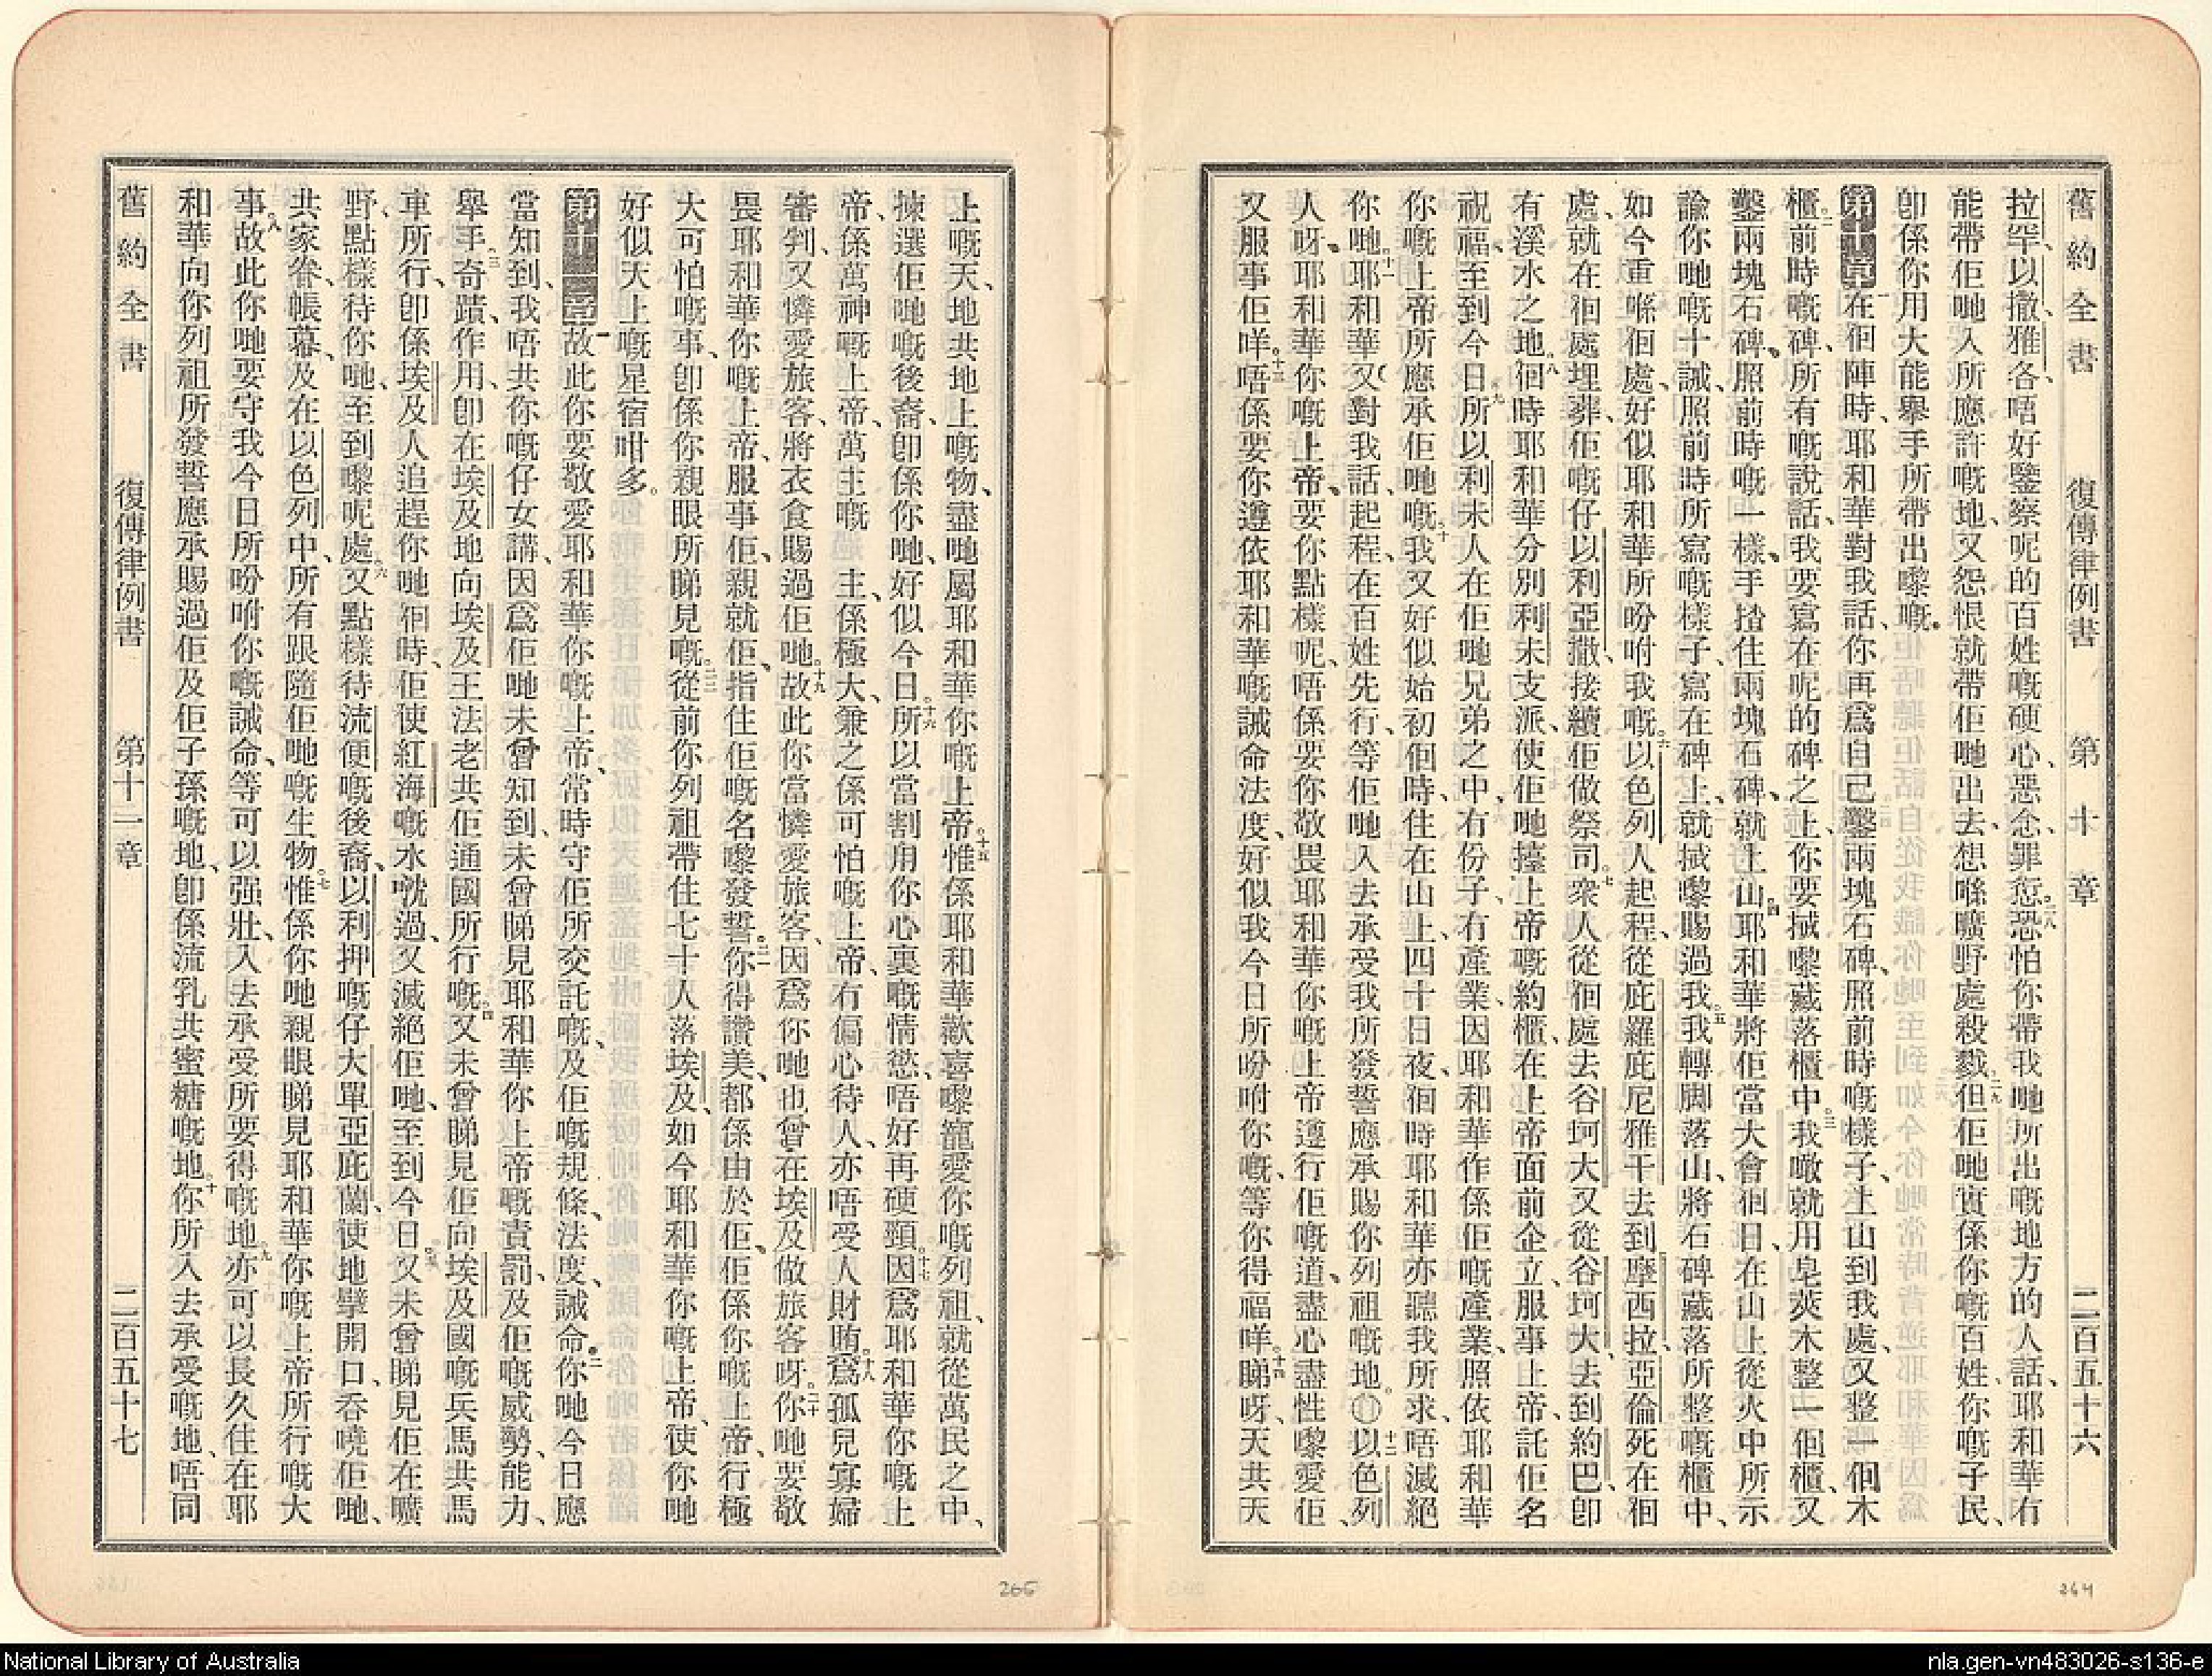 舊約全書　復傳律例書　第十章　二百五十六
拉罕、以撒、雅各、唔好鑒察呢的百姓嘅硬心、惡念、罪愆、二八恐怕你帶我哋所出嘅地方的人話、耶和華有
能帶佢哋入所應許嘅地、又怨恨就帶佢哋出去、想喺曠野處殺戮、二九但佢哋實係你嘅百姓、你嘅子民、
卽係你用大能舉手所帶出嚟嘅。
第十章一在個陣時、耶和華對我話、你再爲自己鑿兩塊石碑、照前時嘅樣子、上山到我處、又整一個木
櫃、二前時嘅碑、所有嘅說話、我要寫在呢的碑之上、你要掝嚟藏落櫃中。三我噉就用皂莢木整一個櫃、又
鑿兩塊石碑、照前時嘅一樣、手揸住兩塊石碑、就上山。四耶和華將佢當大會個日、在山上從火中所示
諭你哋嘅十誡、照前時所寫嘅樣子、寫在碑上、就掝嚟賜過我。五我轉脚落山、將石碑藏落所整嘅櫃中、
如今重喺個處、好似耶和華所吩咐我嘅。六以色列人起程、從庇羅庇尼雅干去到摩西拉、亞倫死在個
處、就在個處埋葬、佢嘅仔以利亞撒、接續佢做祭司。七衆人從個處去谷坷大、又從谷坷大、去到約巴、卽
有溪水之地。八個時耶和華分別利未支派、使佢哋擡上帝嘅約櫃、在上帝面前企立、服事上帝、託佢名
祝福、至到今日。九所以利未人在佢哋兄弟之中、冇份子、冇產業、因耶和華作係佢嘅產業、照依耶和華
你嘅上帝所應承佢哋嘅。十我又好似始初個時、住在山上、四十日夜、個時耶和華亦聽我所求、唔滅絕
你哋。十一耶和華又對我話、起程、在百姓先行、等佢哋入去承受我所發誓應承賜你列祖嘅地。十二以色列
人呀、耶和華你嘅上帝、要你點樣呢、唔係要你敬畏耶和華你嘅上帝、遵行佢嘅道、盡心盡性嚟愛佢、
又服事佢咩。十三唔係要你遵依耶和華嘅誡命法度、好似我今日所吩咐你嘅、等你得福咩。十四睇呀、天共天
264
上嘅天、地共地上嘅物、盡哋屬耶和華你嘅上帝。十五惟係耶和華歡喜嚟寵愛你嘅列祖、就從萬民之中、
揀選佢哋嘅後裔、卽係你哋、好似今日。十六所以當割用你心裏嘅情慾、唔好再硬頸。十七因爲耶和華你嘅上
帝、係萬神嘅上帝、萬主嘅　主、係極大、兼之係可怕嘅上帝、冇偏心待人、亦唔受人財賄。十八爲孤兒寡婦
審判、又憐愛旅客、將衣食賜過佢哋。十九故此你當憐愛旅客、因爲你哋也曾在埃及做旅客呀。二十你哋要敬
畏耶和華你嘅上帝、服事佢、親就佢、指住佢嘅名嚟發誓。二一你得讚美、都係由於佢、佢係你嘅上帝、行極
大可怕嘅事、卽係你親眼所睇見嘅。二二從前你列祖帶住七十人落埃及、如今耶和華你嘅上帝、使你哋
好似天上嘅星宿咁多。
第十一章一故此你要敬愛耶和華你嘅上帝、常時守佢所交託嘅、及佢嘅規條、法度、誡命。二你哋今日應
當知到、我唔共你嘅仔女講、因爲佢哋未曾知到、未曾睇見耶和華你上帝嘅責罰、及佢嘅威勢、能力、
舉手、三奇蹟、作用、卽在埃及地向埃及王法老共佢通國所行嘅、四又未曾睇見佢向埃及國嘅兵馬共馬
車所行、卽係埃及人追趕你哋個時、佢使紅海嘅水㷫過、又滅絕佢哋、至到今日。五又未曾睇見佢在曠
野、點樣待你哋、至到嚟呢處。六又點樣待流便嘅後裔、以利押嘅仔大單亞庇蘭、使地擘開口、吞嘵佢哋、
共家眷、帳幕、及在以色列中、所有跟隨佢哋嘅生物。七惟係你哋親眼睇見耶和華你嘅上帝所行嘅大
事、八故此你哋要守我今日所吩咐你嘅誡命、等可以强壯、入去承受所要得嘅地。九亦可以長久住在耶
和華向你列祖所發誓應承賜過佢及佢子孫嘅地、卽係流乳共蜜糖嘅地。十你所入去承受嘅地、唔同
舊約全書　復傳律例書　第十一章　二百五十七
265
National Library of Australia
nla.gen-vn483026-s136-e